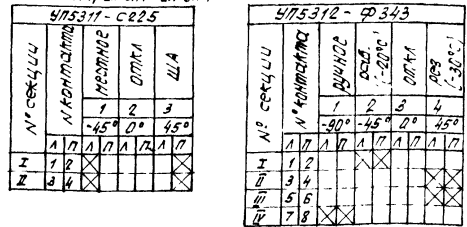 УП5311-С225
№ секции
№ контакта
местное
откл
ША
1 2 3
-45° 0° 45°
Л П Л П Л П
I 1 2
II 3 4
УП5312-Ф343
№ секции
№ контакта
ручное
раб. (-20°С)
откл
рез (-30°С)
1 2 3 4
-90° -45° 0° 45°
Л П Л П Л П Л П
I 1 2
II 3 4
III 5 6
IV 7 8